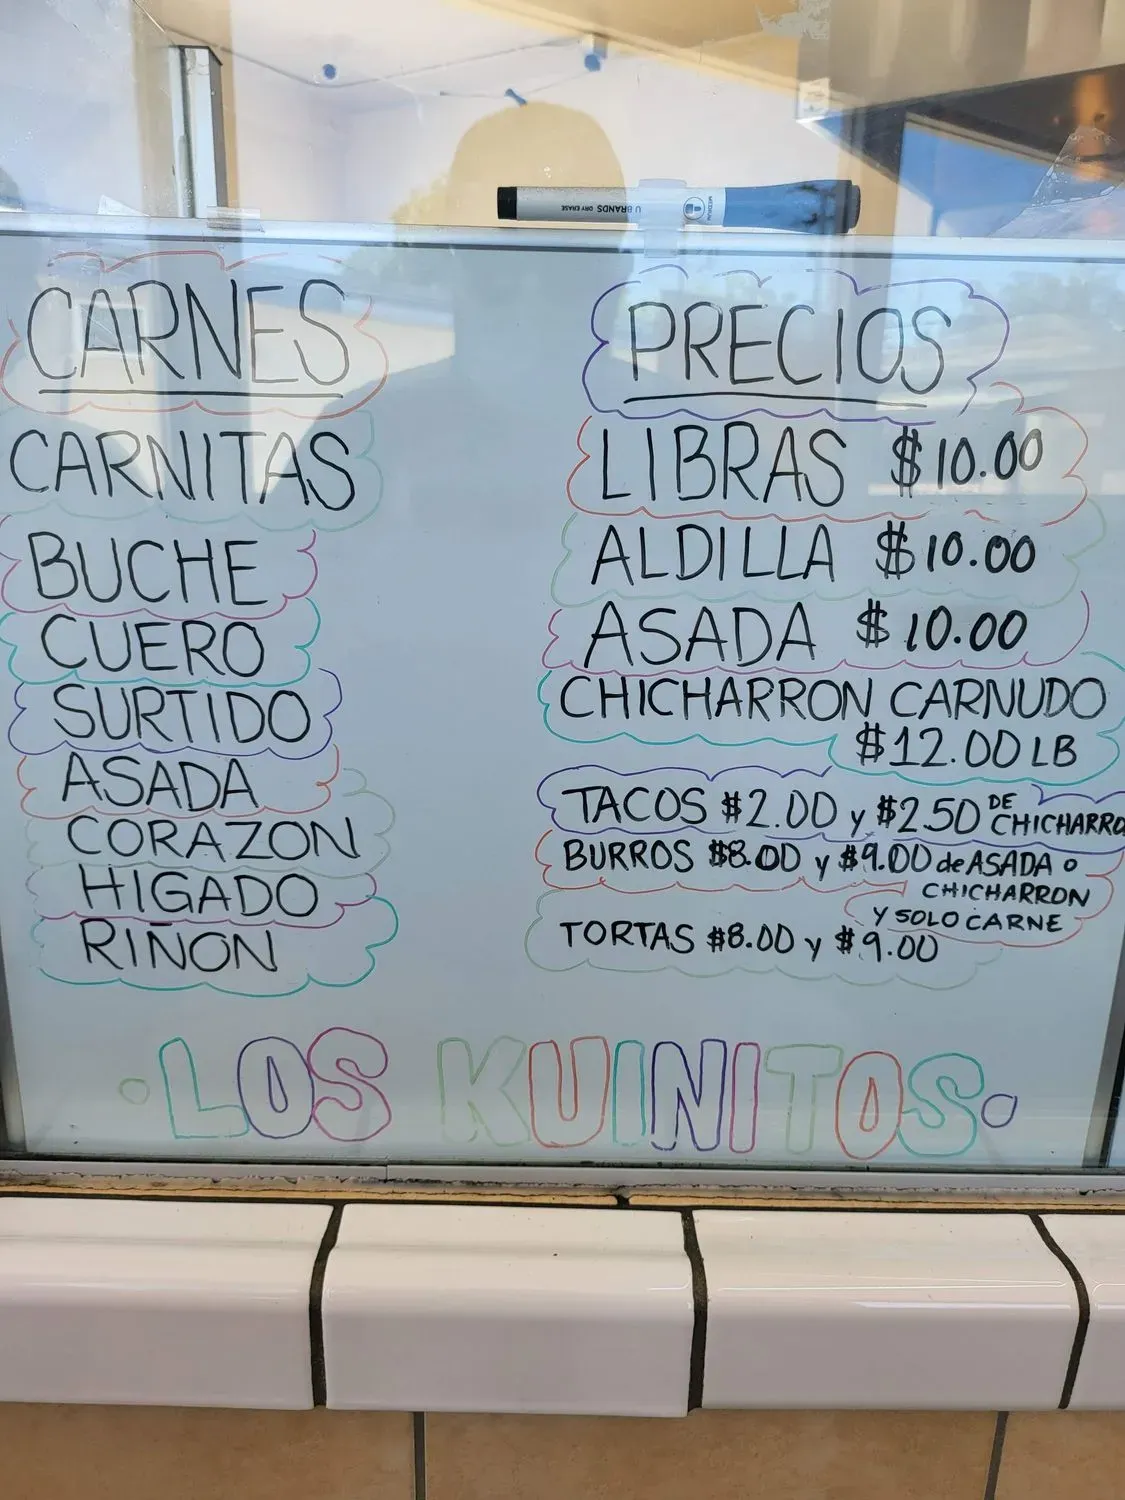 U BRANDS DRY ERASE
MEDIUM
CARNES
CARNITAS
BUCHE
CUERO
SURTIDO
ASADA
CORAZON
HIGADO
RIÑON
PRECIOS
LIBRAS $10.00
ALDILLA $10.00
ASADA $10.00
CHICHARRON CARNUDO
$12.00 LB
TACOS $2.00 y $2.50 DE CHICHARRO
BURROS $8.00 y $9.00 de ASADA o
CHICHARRON
Y SOLO CARNE
TORTAS $8.00 y $9.00
·LOS KUINITOS·